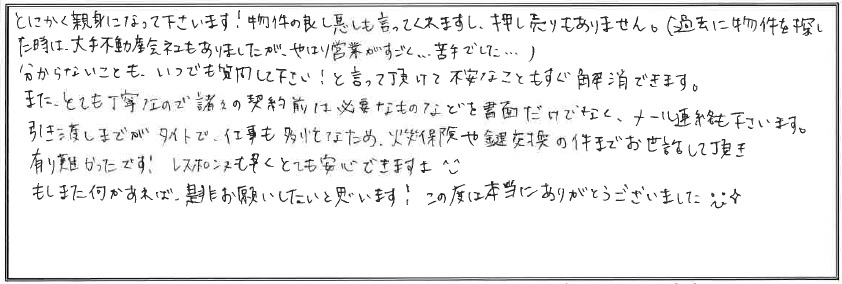 とにかく親身になって下さいます！物件の良し悪しも言ってくれますし、押し売りもありません。(過去に物件を探し
た時は、大手不動産会社もありましたが、やはり営業がすごく…苦手でした…)
分からないことも、いつでも質問して下さい！と言って頂けて不安なこともすぐ解消できます。
また、とても丁寧なので諸々の契約前は必要なものなどを書面だけでなく、メール連絡も下さいます。
引き渡しまでがタイトで、仕事も多忙なため、火災保険や鍵交換の件までお世話して頂き
有り難かったです！レスポンスも早くとても安心できます
もしまた何かあれば、是非お願いしたいと思います！この度は本当にありがとうございました